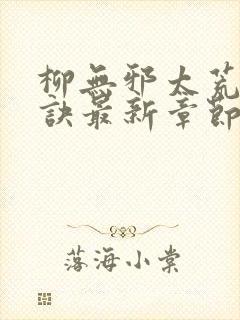 柳無邪太荒
訣最新章節
落海小棠